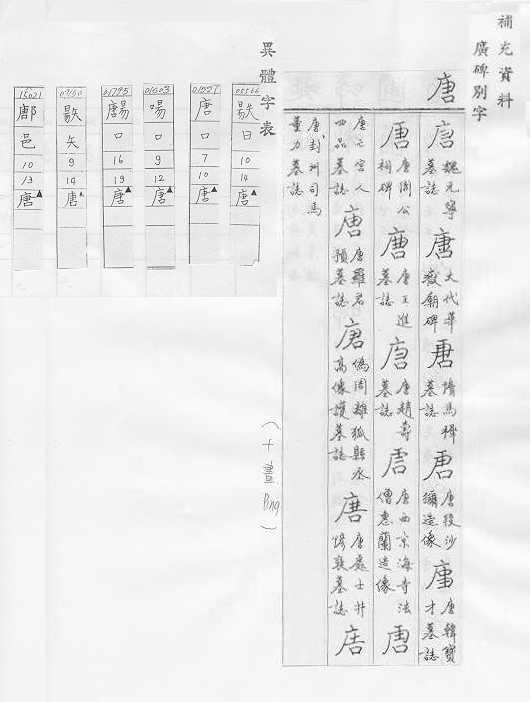 補充資料
廣碑別字
唐
唐 魏元寧墓誌 唐 大代華嶽廟碑 唐 隋馬穉墓誌 唐 唐段沙彌造像 唐 唐韓寶才墓誌
唐 唐周公祠碑 唐 唐王進墓誌 唐 唐趙壽墓誌 唐 唐西宗海寺法僧惠蘭造像 唐
唐亡宮人四品墓誌 唐 唐羅君預墓誌 唐 偽周離狐縣丞高像護墓誌 唐 唐處士 墓誌 唐
唐 州司馬董力墓誌
異體字表
05566 日 10 14 唐▲
01527 唐 口 7 10 唐▲
01603 啺 口 9 12 唐▲
01795 口 16 19 唐▲
矢 9 14 唐▲
15021 鄌 邑 10 13 唐▲
(十畫 Ping)